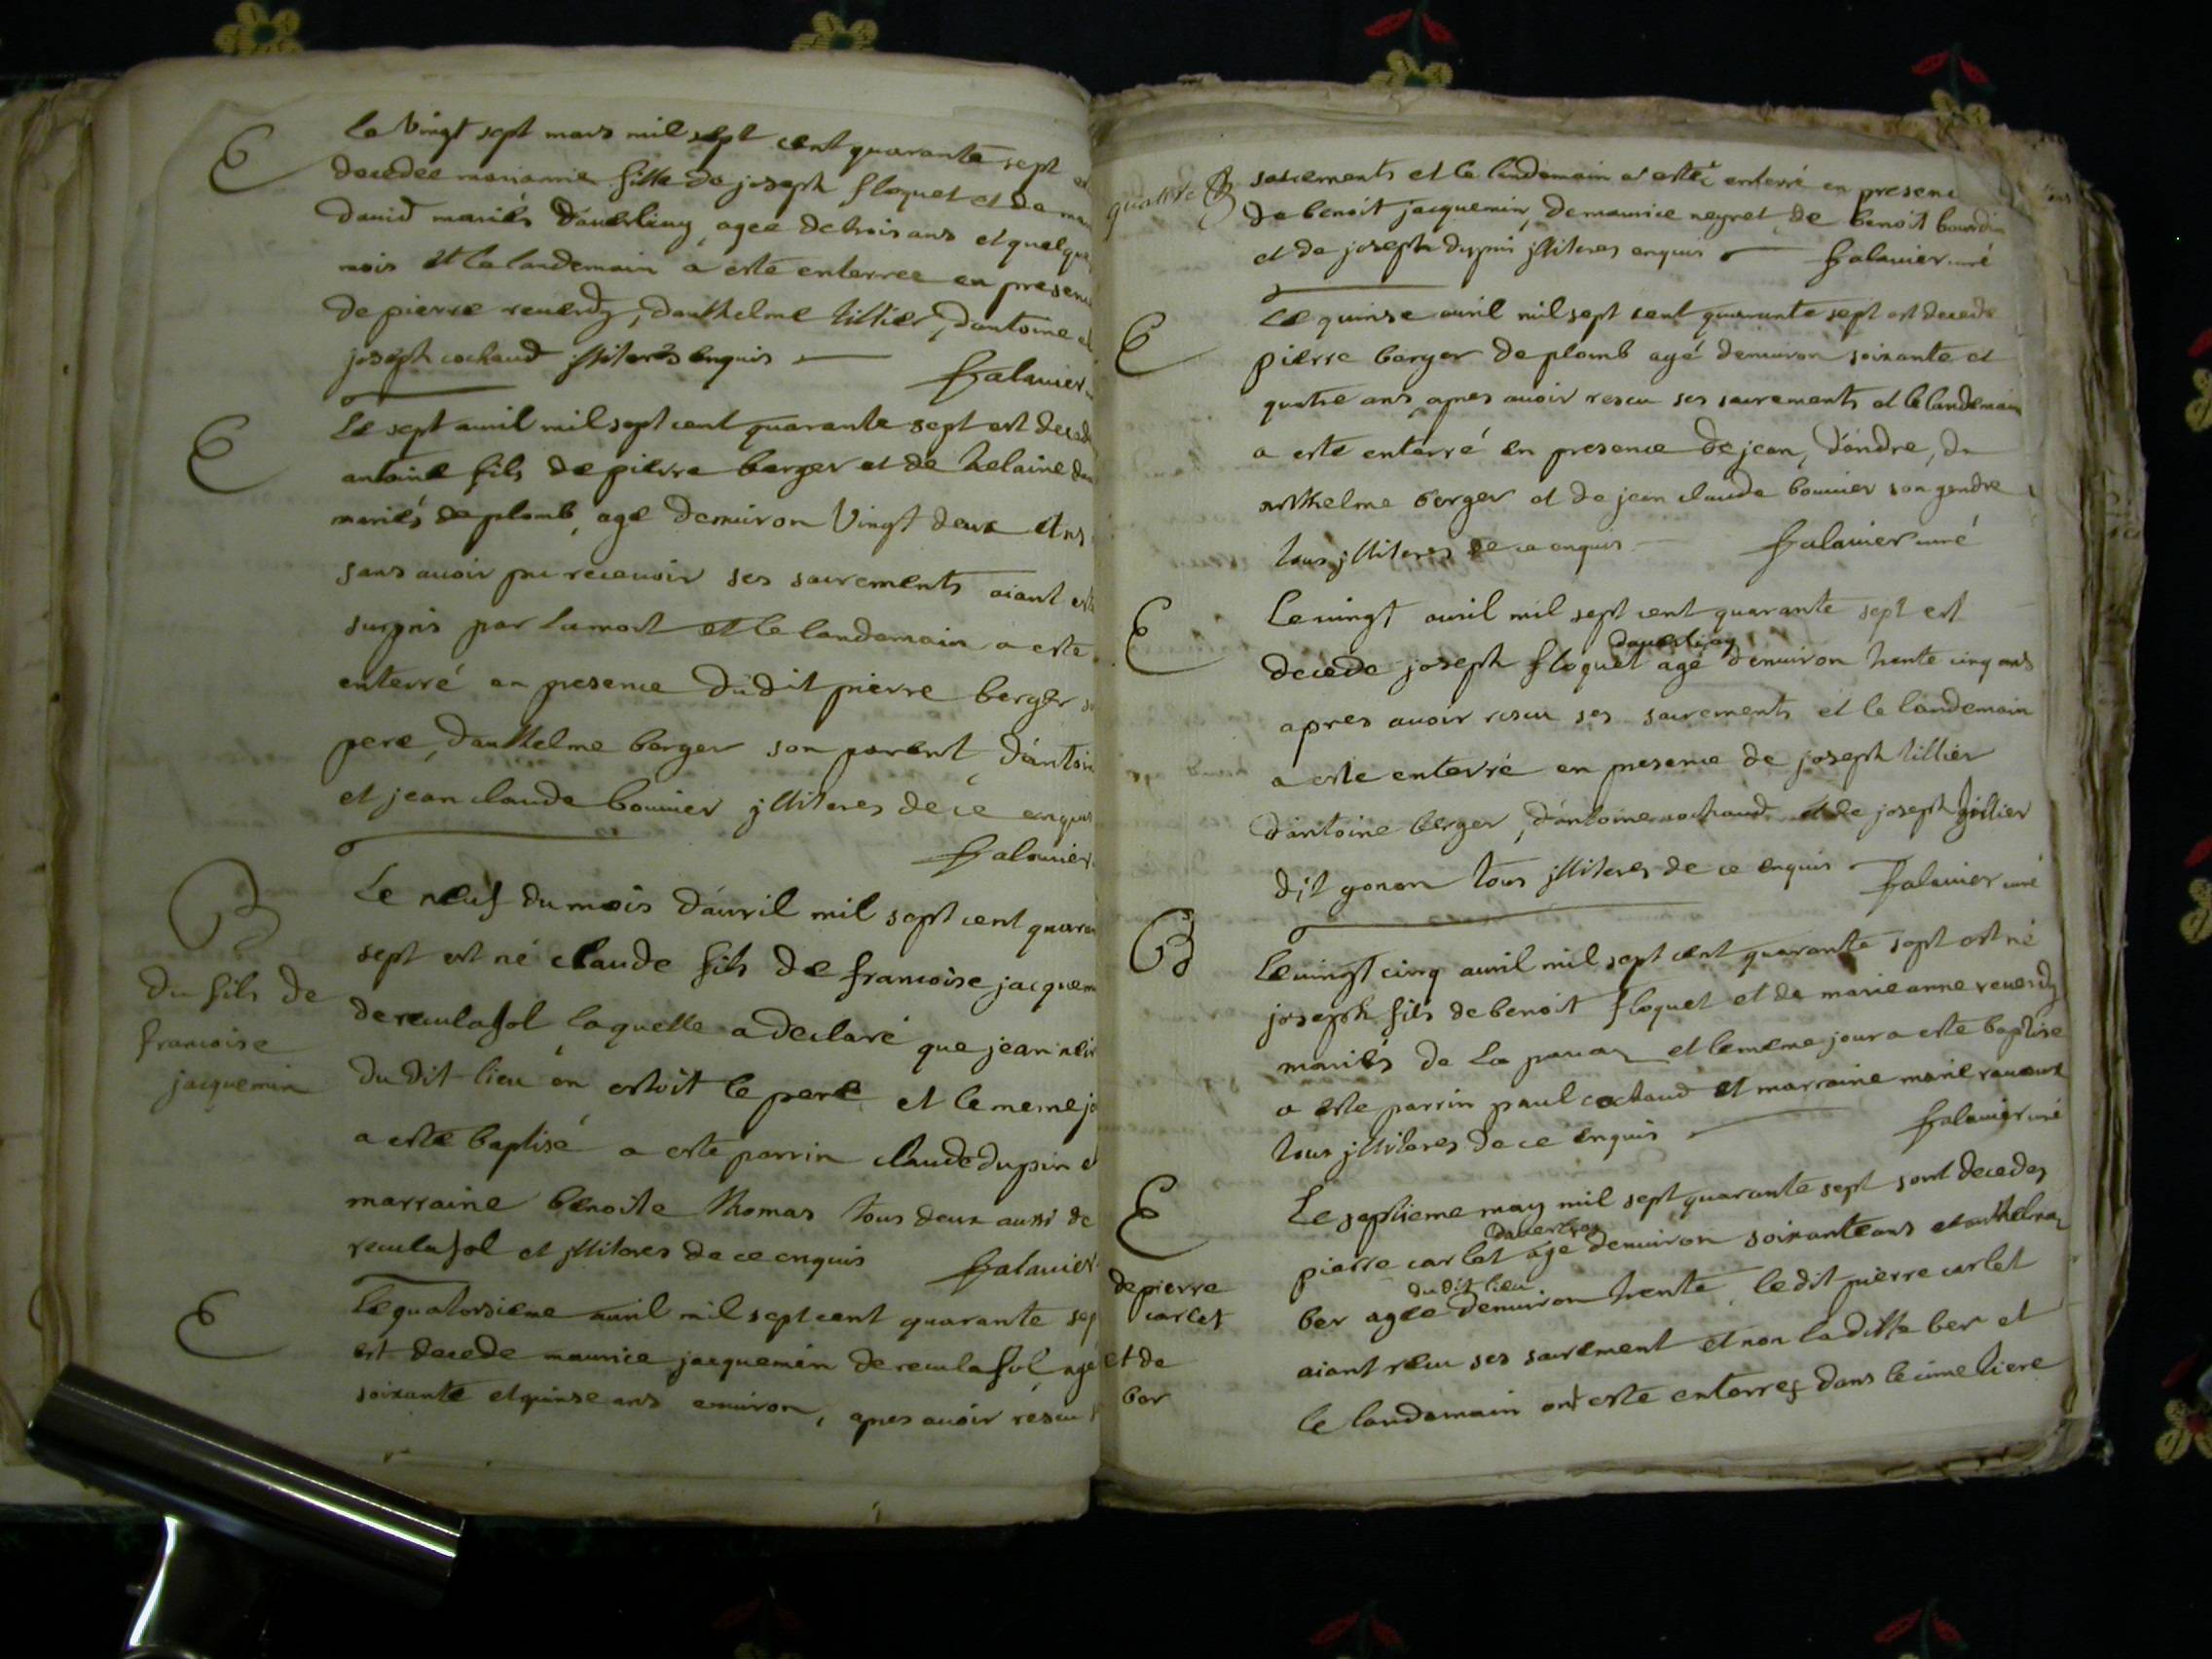 E
Le vingt sept mars mil sept cent quarante sept
decedee marianne fille de joseph floquet et de
david mariés d'auerliay agee de trois ans et quelque
mois et le landemain a esté enterree en presen
de pierre reuerdy, danthelme tillier, dantoine et
joseph cochaud jlliteres enquis
falauier
E
Le sept auril mil sept cent quarante sept est deced
antoine fils de pierre berger et de helaine
mariés de plomb, age denuiron vingt deux ans
sans auoir pu receuoir ses sacrements aiant esté
surpris par la mort et le landemain a esté
enterré en presence du dit pierre berger
pere, danthelme berger son parent d'antoi
et jean claude bouuier jlliteres de ce enquis
falauier
B
du fils de
francoise
jacquemin
Le neuf du mois d'auril mil sept cent quara
sept est né claude fils de francoise jacquem
de reculafol laquelle a declaré que jean
du dit lieu en estoit le pere et le meme jo
a esté baptisé a esté parrin claude dupin e
marraine benoite thomas tous deux aussi de
reculafol et jlliteres de ce enquis falauier
E
Le quatorsieme auril mil sept cent quarante sep
est decede maurice jacquemin de reculafol agé
soixante et quinse ans enuiron, apres auoir rescu
quatre
sacrements et le landemain a esté enterré en presen
de benoit jacquemin, de maurice neyret de benoit bourdin
et de joseph dupin jlliteres enquis falauier curé
E
Le quinse auril mil sept cent quarante sept est decede
pierre berger de plomb agé denuiron soixante et
quatre ans apres auoir rescu ses sacrements et le landemain
a esté enterré en presence de jean, d'andre, da
nthelme berger et de jean claude bouuier son gendre
tous jlliteres de ce enquis falauier curé
E
Le uingt auril mil sept cent quarante sept est
dauerliay
decede joseph floquet agé denuiron trente cinq ans
apres auoir rescu ses sacrements et le landemain
a esté enterré en presence de joseph tillier
d'antoine berger, d'antoine cochaud et de joseph tillier
dit gonon tous jlliteres de ce enquis falauier curé
B
Le uingt cinq auril mil sept cent quarante sept est né
joseph fils de benoit floquet et de marieanne reuerdy
mariés de la et le meme jour a esté baptisé
a esté parrin paul cochaud et marraine marie
tous jlliteres de ce enquis falauier curé
E
de pierre
carlet
et de
ber
Le septieme may mil sept quarante sept sont decedez
dauerliay
pierre carlet age denuiron soixante ans et anthelmaz
du dit lieu
ber agee denuiron trente, ledit pierre carlet
aiant receu ses sacrement et non laditte ber et
le landemain ont esté enterrez dans le cimetiere